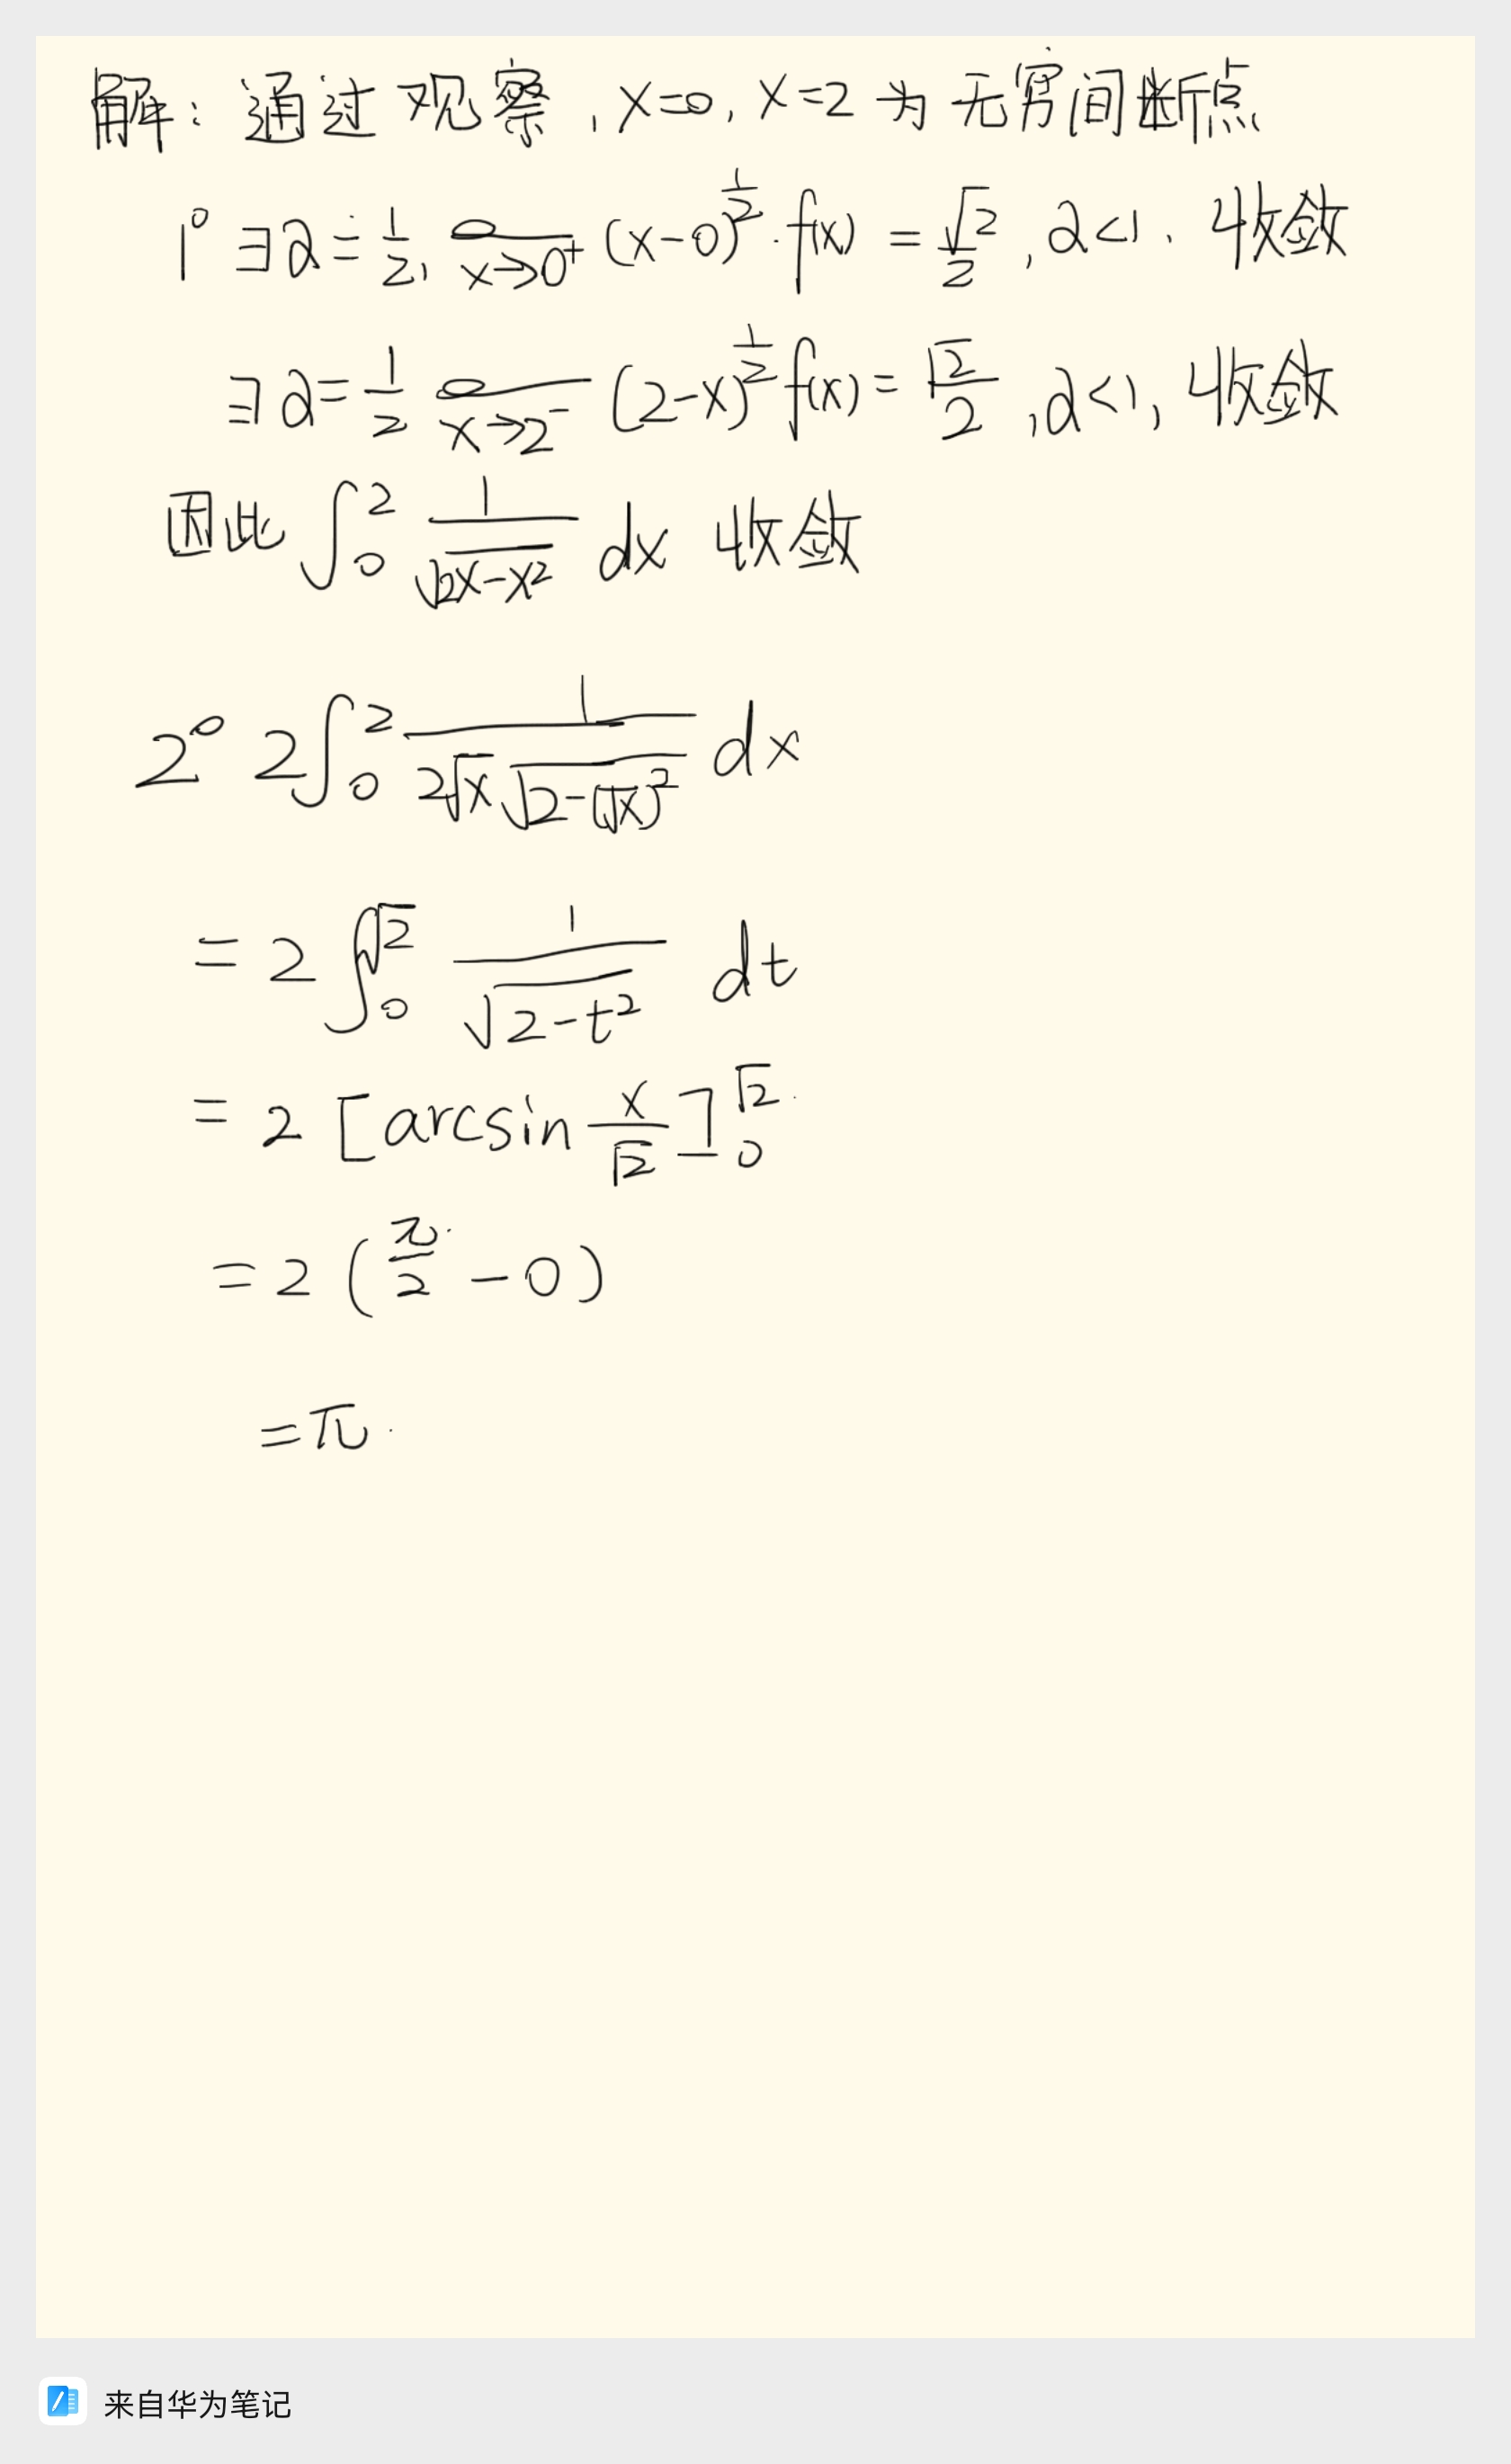 解：通过观察，x=0，x=2为无穷间断点
1° ∃α=1/2, lim x→0⁺ (x-0)^(1/2)·f(x) = √2/2, α<1, 收敛
∃α=1/2 lim x→2⁻ (2-x)^(1/2) f(x) = √2/2, α<1, 收敛
因此 ∫₀² 1/√(2x-x²) dx 收敛
2° 2∫₀² 1/(2√x √(2-(√x)²)) dx
= 2∫₀^√2 1/√(2-t²) dt
= 2 [arcsin x/√2]₀^√2
= 2 (π/2 - 0)
= π.
来自华为笔记